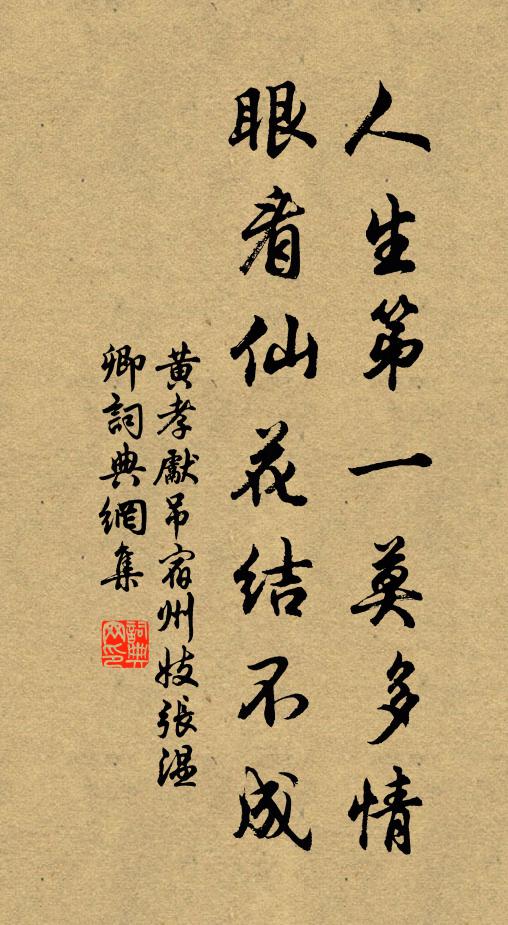 人生第一莫多情
眼看仙花結不成
黃孝獻吊宿州妓張溫
卿詞典網集
詞典網印